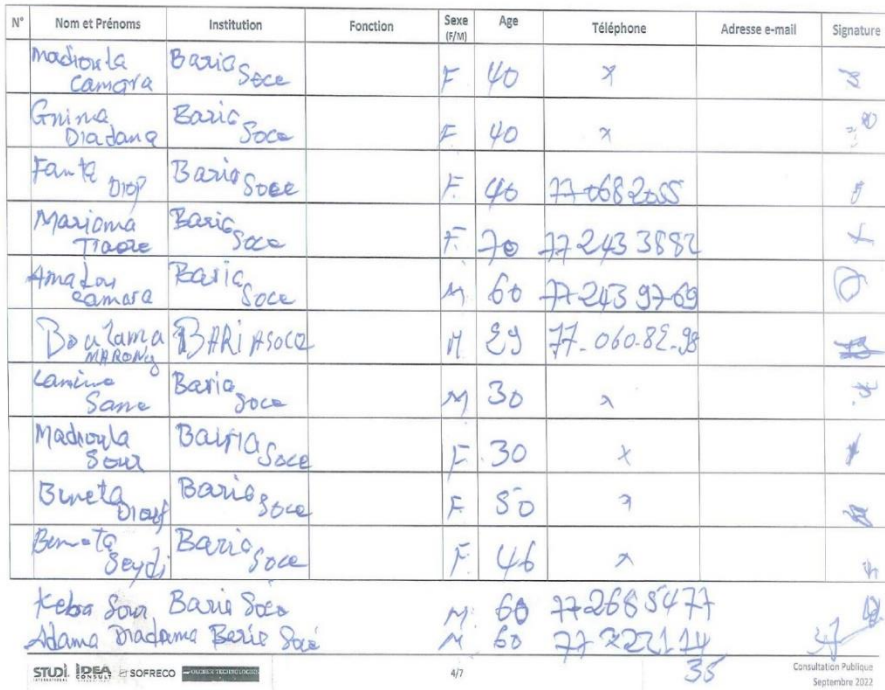 N° Nom et Prénoms Institution Fonction Sexe (F/M) Age Téléphone Adresse e-mail Signature
Madioula Camara Baria Soce F 40 x
Gnima Diadama Baria Soce F 40 x
Fanta Diop Baria Soce F. 40 77-068 2055
Mariama Traore Baria Soce F. 70 77 243 3882
Amadou Camara Baria Soce M 60 77-243 97-69
Boulama MARONG BARIA SOCE M 29 77-060-82-98
Lamine Sane Baria Soce M 30 x
Madioula Sour Bairia Soce F 30 x
Bineta Diouf Baria Soce F 50 x
Bineta Seydi Baria Soce F 46 x
Keba Sour Barie Soce M 60 77 268 5477
Adama Diadama Barie Socé M 60
35
STUDI INTERNATIONAL IDEA CONSULT SOFRECO
4/7
Consultation Publique
Septembre 2022